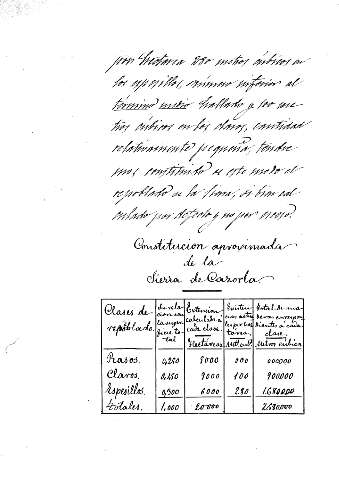 por hectarea 280 metros cúbicos en
los espesillos, número inferior al
término medio hallado y 100 me-
tros cúbicos en los claros, cantidad
relativamente pequeña, tendre-
mos constituido de este modo el
repoblado de la Sierra, si bien cal-
culado por defecto y no por exceso.
Constitucion aproximada
de la
Sierra de Cazorla.
Clases de repoblado. Su relacion con la superficie total Extension calculada á cada clase. Hectáreas Existencias por hectarea. Mett cub. Total de madera correspondiente á cada clase. Metros cúbicos
Rasos. 0,250 5000 000 000000
Claros. 0,450 9000 100 900000
Espesillos. 0,300 6000 280 1.680000
Totales. 1,000 20000 2580000